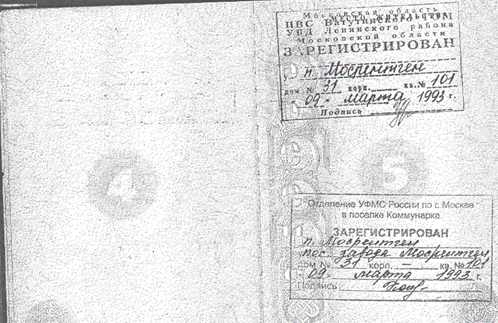 Московская область
ПВС Ватутинское ГОМ
УВД Ленинского района
Московской области
ЗАРЕГИСТРИРОВАН
п. Мосрентген
дом № 31 корп. кв. № 101
"09" марта 1993 г.
Подпись
4
5
Отделение УФМС России по г. Москве
в поселке Коммунарка
ЗАРЕГИСТРИРОВАН
п. Мосрентген
пос. завода Мосрентген
дом № 31 корп. – кв. № 101
"09" марта 1993 г.
Подпись